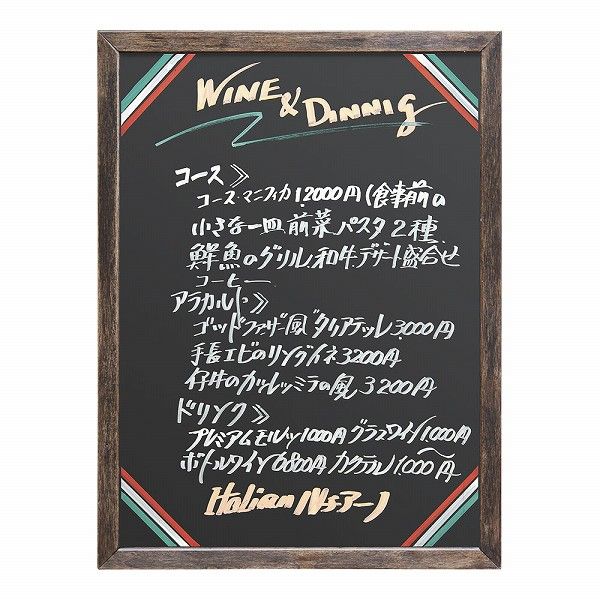 WINE & DINNIG
コース》
コース・マニフィカ 12000円(食事前の
小さな一皿、前菜、パスタ2種、
鮮魚のグリル、和牛、デザート盛合せ
コーヒー
アラカルト》
ゴッドファザー風タリアテッレ 3000円
手長エビのリングイネ 3200円
仔牛のカツレッミラの風 3200円
ドリンク》
プレミアムモルツ1000円 グラスワイン1000円
ボトルワイン6800円 カクテル1000円〜
Italian